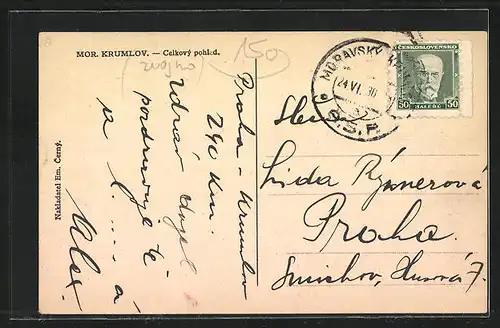 MOR. KRUMLOV. — Celkový pohled.
150
Nakladatel Em. Černý.
Praha - Krumlov
290 km.
Zdraví
pozdravuje Tě
a
MORAVSKÝ
24.VI.30
Č.S.R.
ČESKOSLOVENSKO
50 HALÉŘŮ 50
Lida Rýznerová
Praha.
Smíchov, Husova 7.